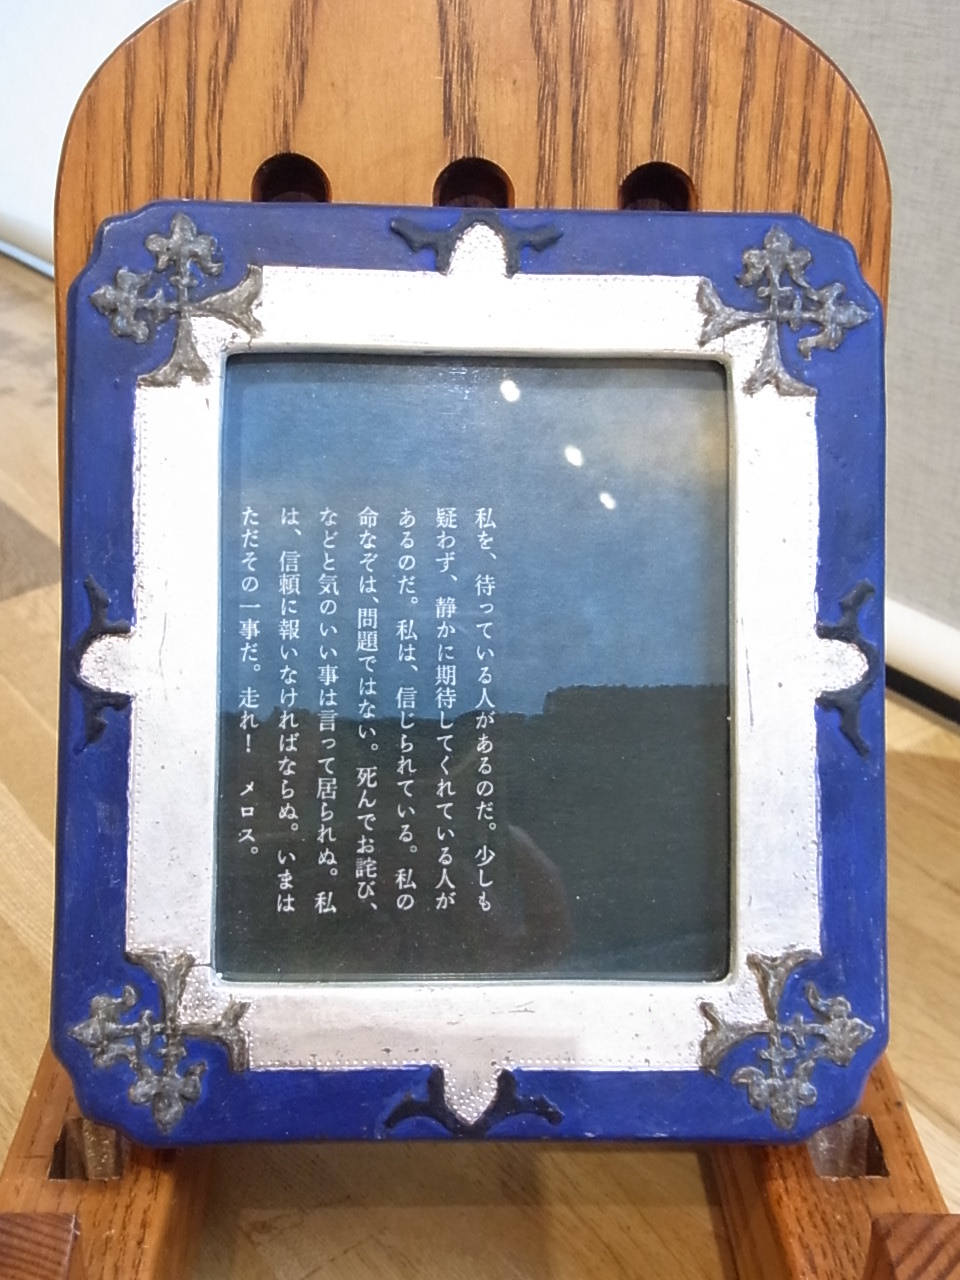 私を、待っている人があるのだ。少しも
疑わず、静かに期待してくれている人が
あるのだ。私は、信じられている。私の
命なぞは、問題ではない。死んでお詫び、
などと気のいい事は言って居られぬ。私
は、信頼に報いなければならぬ。いまは
ただその一事だ。走れ！　メロス。